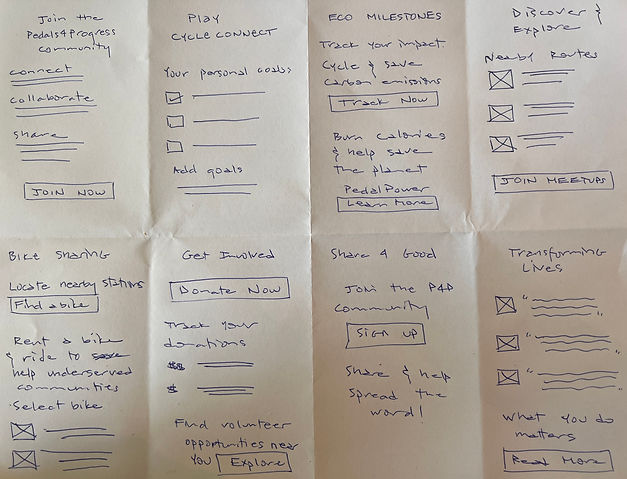 Join the
Pedals4Progress
community
connect
collaborate
share
JOIN NOW
Play
CYCLE CONNECT
Your personal goals:
Add goals
ECO MILESTONES
Track your impact.
Cycle & save
carbon emissions
Track Now
Burn calories
& help save
the planet
PedalPower
Learn More
Discover &
Explore
Nearby Routes
JOIN MEETUPS
Bike Sharing
Locate nearby stations
Find a bike
Rent a bike
& ride to
help underserved
communities
Select bike
Get Involved
Donate Now
Track your
donations
$$
$
Find volunteer
opportunities near
you Explore
Share 4 Good
Join the P4P
community
SIGN UP
Share & help
spread the
word!
Transforming
Lives
" "
" "
" "
What you do
matters
Read More